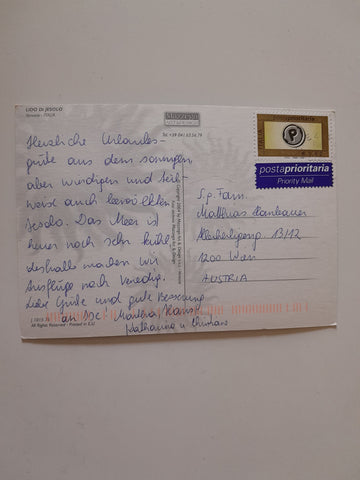 LIDO DI JESOLO
Venezia - ITALIA
Tel. +39 041 63.56.79
Herzliche Urlaubs-
grüße aus dem sonnigen
aber windigen und teil-
weise auch bewölkten
Jesolo. Das Meer ist
heuer noch sehr kühl
deshalb machen wir
Ausflüge nach Venedig.
Liebe Grüße und gute Besserung
an Martha, Hansi,
Katharina u. Christian
All Rights Reserved - Printed in E.U.
ITALIA
postaprioritaria
P
postaprioritaria
Priority Mail
Sg. Fam.
Matthias
13/12
1200 Wien
AUSTRIA